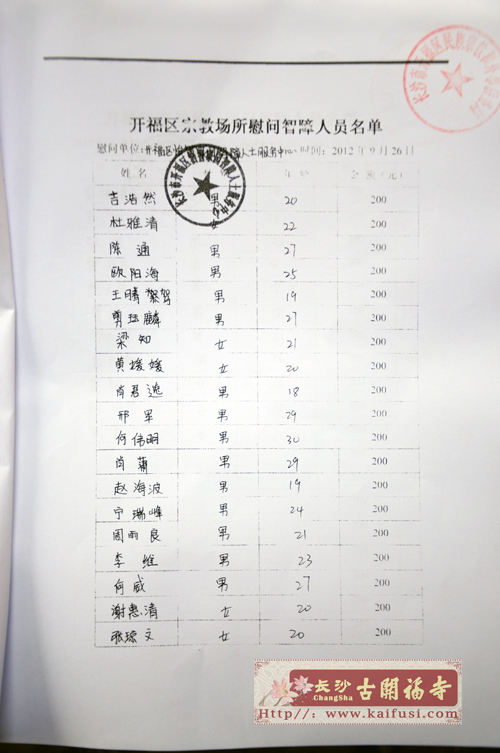 开福区宗教场所慰问智障人员名单
慰问单位:开福区 障人士服务中心 时间: 2012年9月26日
姓名 年龄 金额(元)
吉浩然 男 20 200
杜雅清 女 22 200
陈通 男 27 200
欧阳海 男 25 200
王晴 男 19 200
男 27 200
梁知 女 21 200
黄媛媛 女 20 200
肖君逸 男 18 200
邢军 男 29 200
何伟明 男 30 200
肖 男 29 200
赵海波 男 19 200
宁瑞峰 男 24 200
周雨良 男 21 200
李维 男 23 200
何威 男 27 200
谢惠清 女 20 200
张琼文 女 20 200
长沙古開福寺
ChangSha
Http://www.kaifusi.com